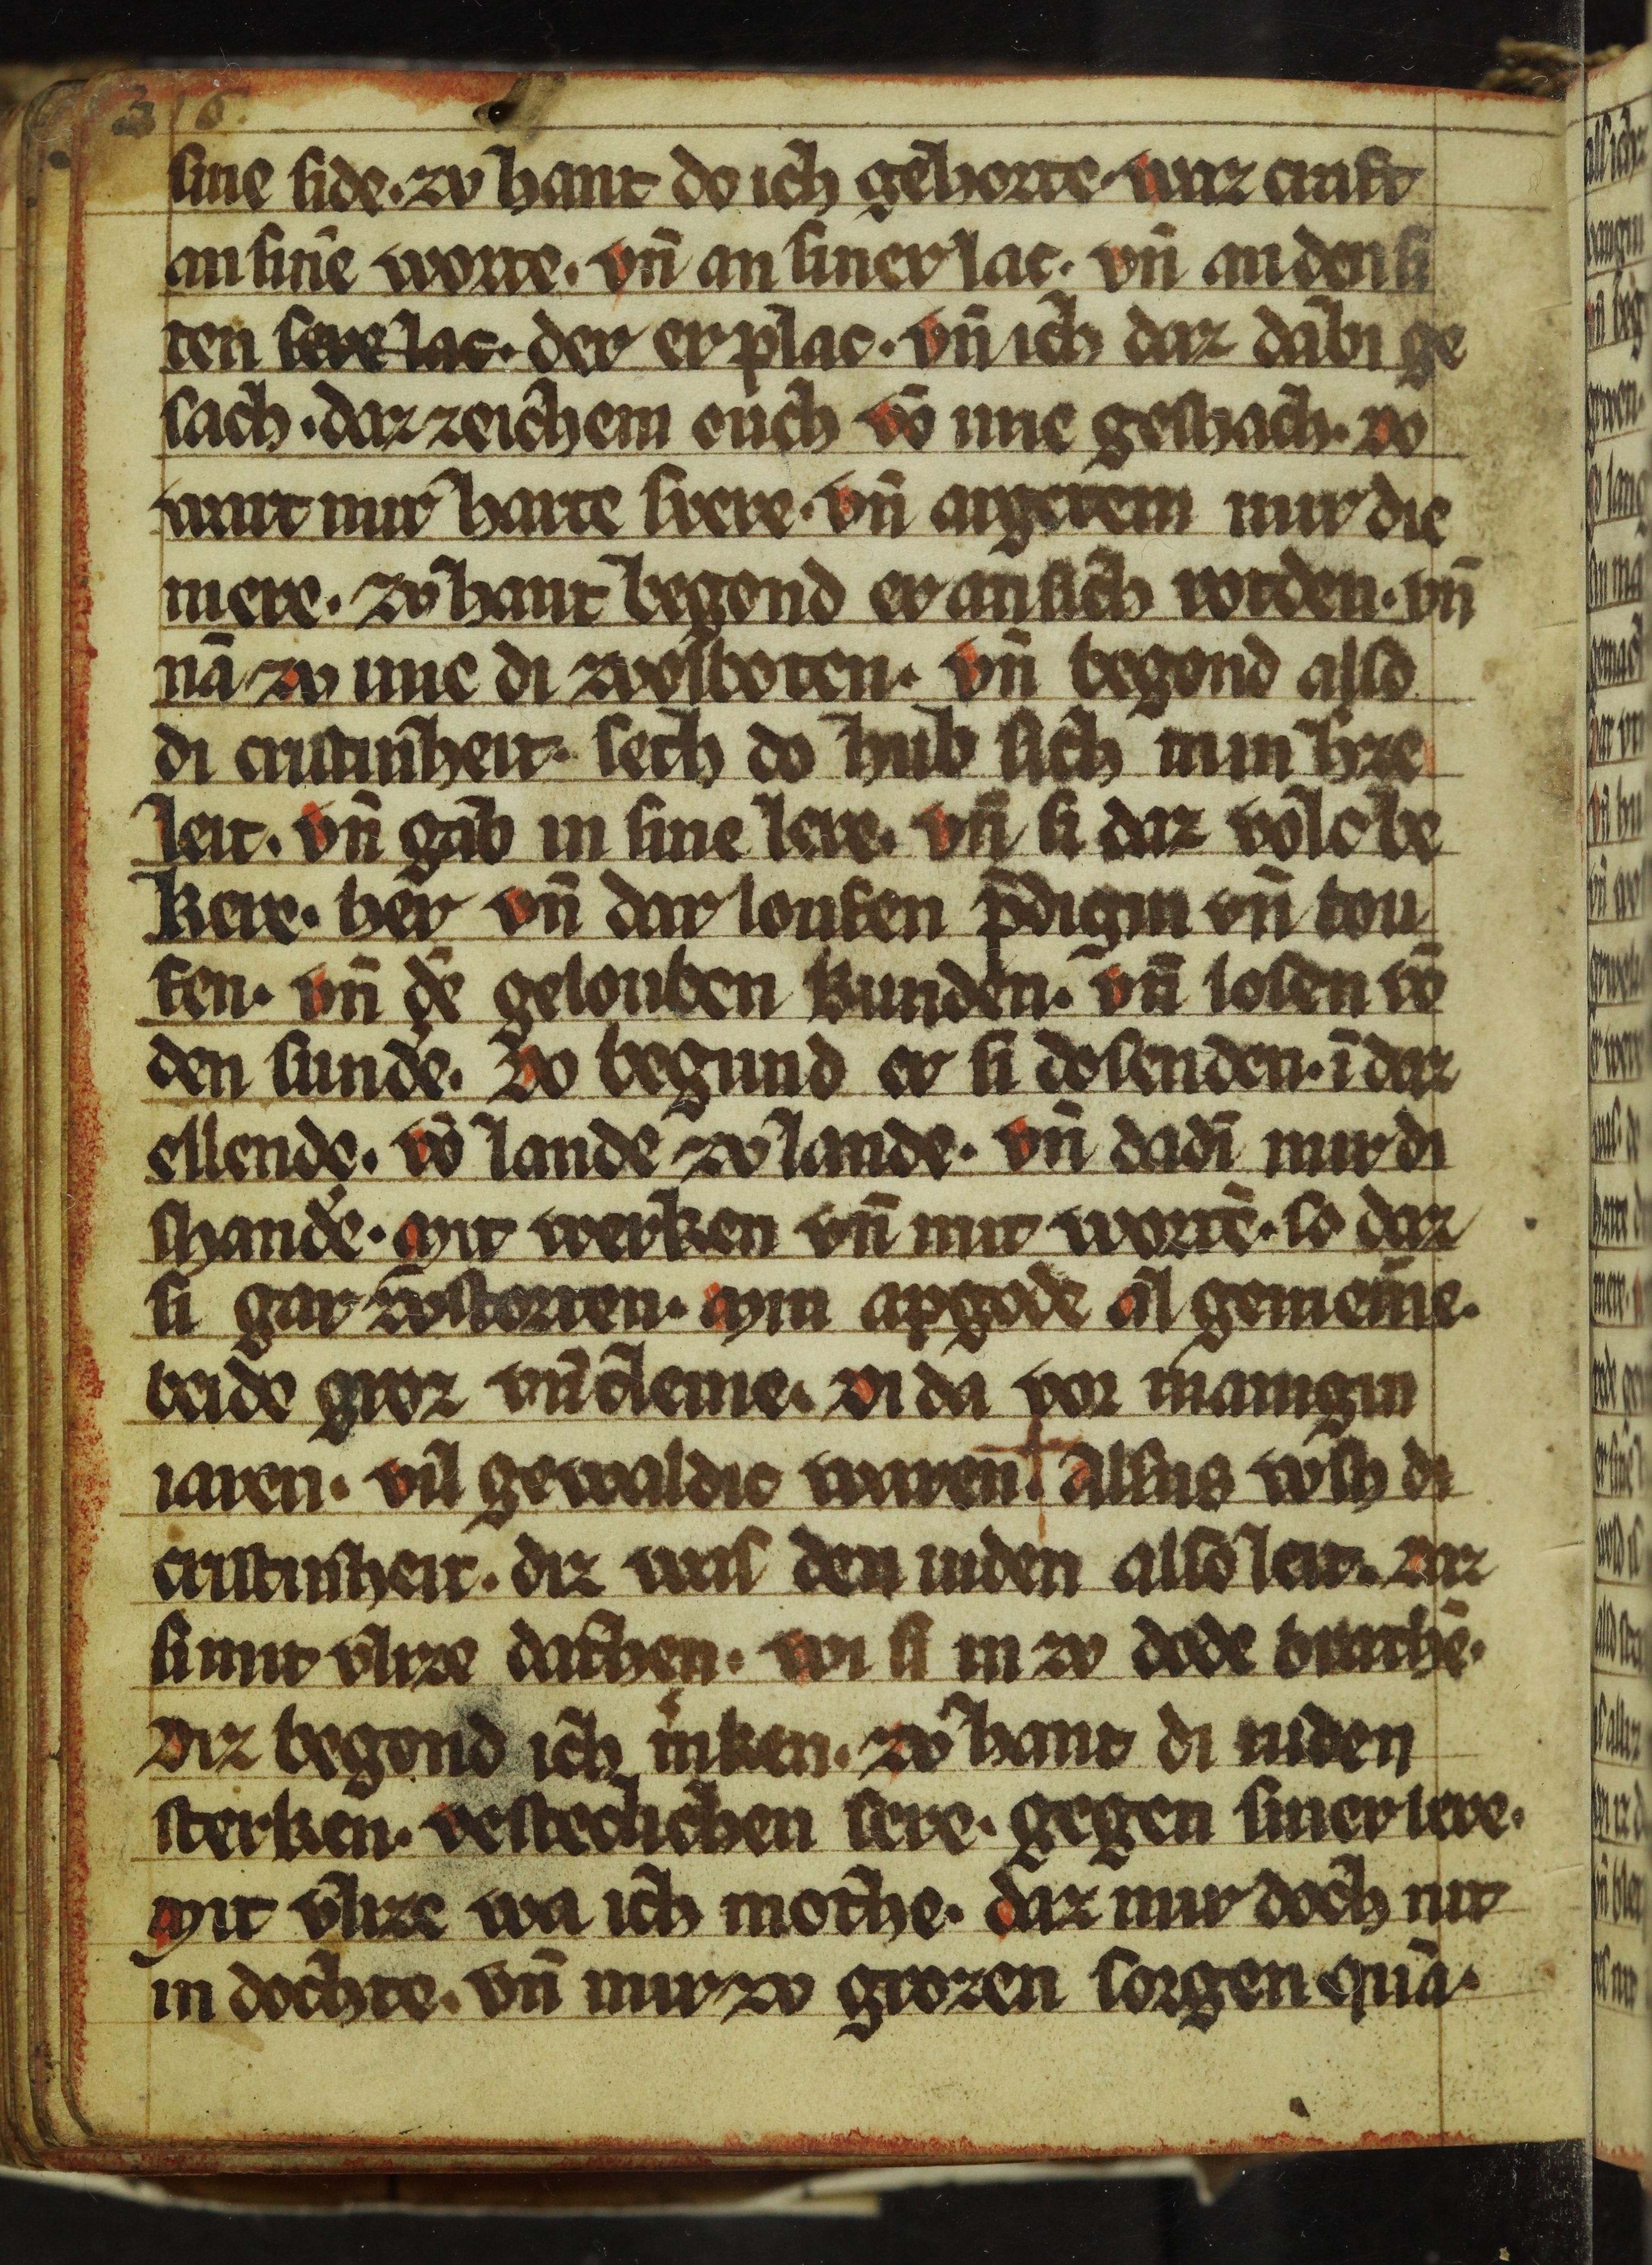 316.
sine side. zv hant do ich gehorte. waz craft
an sinē worte. vn̄ an siner lac. vn̄ an den si
ten sere lac. der er plac. vn̄ ich daz dabi ge
sach. daz zeichem ouch vō ime geshach. Do
wart mir harte svere. vn̄ argerem mir die
mere. zv hant begond er an sich vorden. vn̄
nā zv ime di zvosboten. vn̄ begond also
di cristinheit. sech do hub sich min h̄ze
leit. vn̄ gab in sine lere. vn̄ si daz volc be
kere. her vn̄ dar loufen p̄digin vn̄ tou
fen. vn̄ dē gelouben kunden. vn̄ losen vō
den sundē. Do begund er si do senden. ī daz
ellende. vō lande zv lande. vn̄ dadī mir di
shande. Mit werken vn̄ mit wortē. so daz
si gar zv̄storten. Min apgode al gemeine.
beide groz vn̄ cleine. Di da vor manigin
iaren. vil gewaldic waren. Alsus wsh di
cristinheit. diz was den iuden also leit. Daz
si mit vlize dachen. wi si in zv dode brachē.
Diz begond ich mken. zv hant di iuden
sterken. vesteclichen sere. gegen siner lere.
Mit vlize wa ich mothe. Daz mir doch nit
in dochte. vn̄ mir zv grozen sorgen quā.